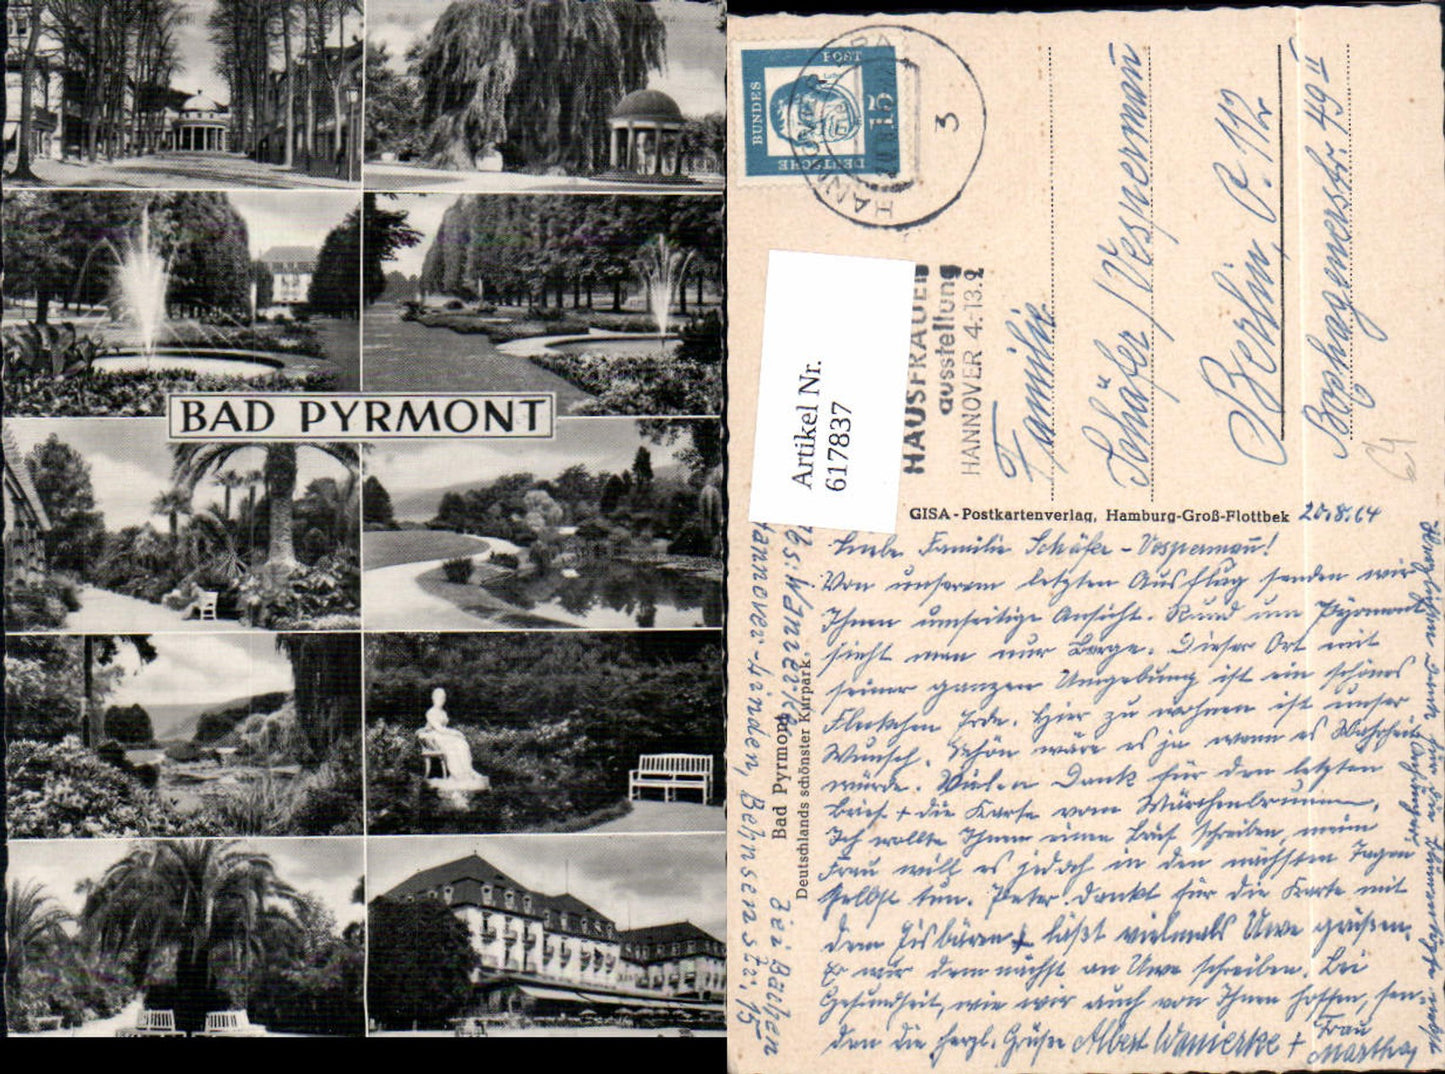 BAD PYRMONT
DEUTSCHE
BUNDES
POST
15
HANNOVER
3
HAUSFRAUEN
ausstellung
HANNOVER 4.-13.9.
Artikel Nr.
617837
Familie
Schäfer/Vespermann
Berlin, O. 112
Boxhagenerstr. 49 II
64
GISA-Postkartenverlag, Hamburg-Groß-Flottbek
Bad Pyrmont
Deutschlands schönster Kurpark
20.8.64
Liebe Familie Schäfer - Vespermann!
Von unserem letzten Ausflug senden wir
Ihnen umseitige Ansicht. Rund um Pyrmont
sieht man nur Berge. Dieser Ort mit
seiner ganzen Umgebung ist ein schönes
Fleckchen Erde. Hier zu wohnen ist unser
Wunsch. Schön wäre es ja wenn es Wahrheit
würde. Vielen Dank für den letzten
Brief + die Karte vom Märchenbrunnen.
Ich wollte Ihnen einen Brief schreiben, meine
Frau will es jedoch in den nächsten Tagen
selbst tun. Peter dankt für die Karte mit
dem Eisbären + läßt vielmals Uwe grüßen.
Er wir demnächst an Uwe schreiben. Bei
Gesundheit, wie wir auch von Ihnen hoffen, sen-
den die herzl. Grüße Albert Wanierke + Frau
Martha
Abs: Wanierke,
Hannover-Linden, Behnsenstr. 15